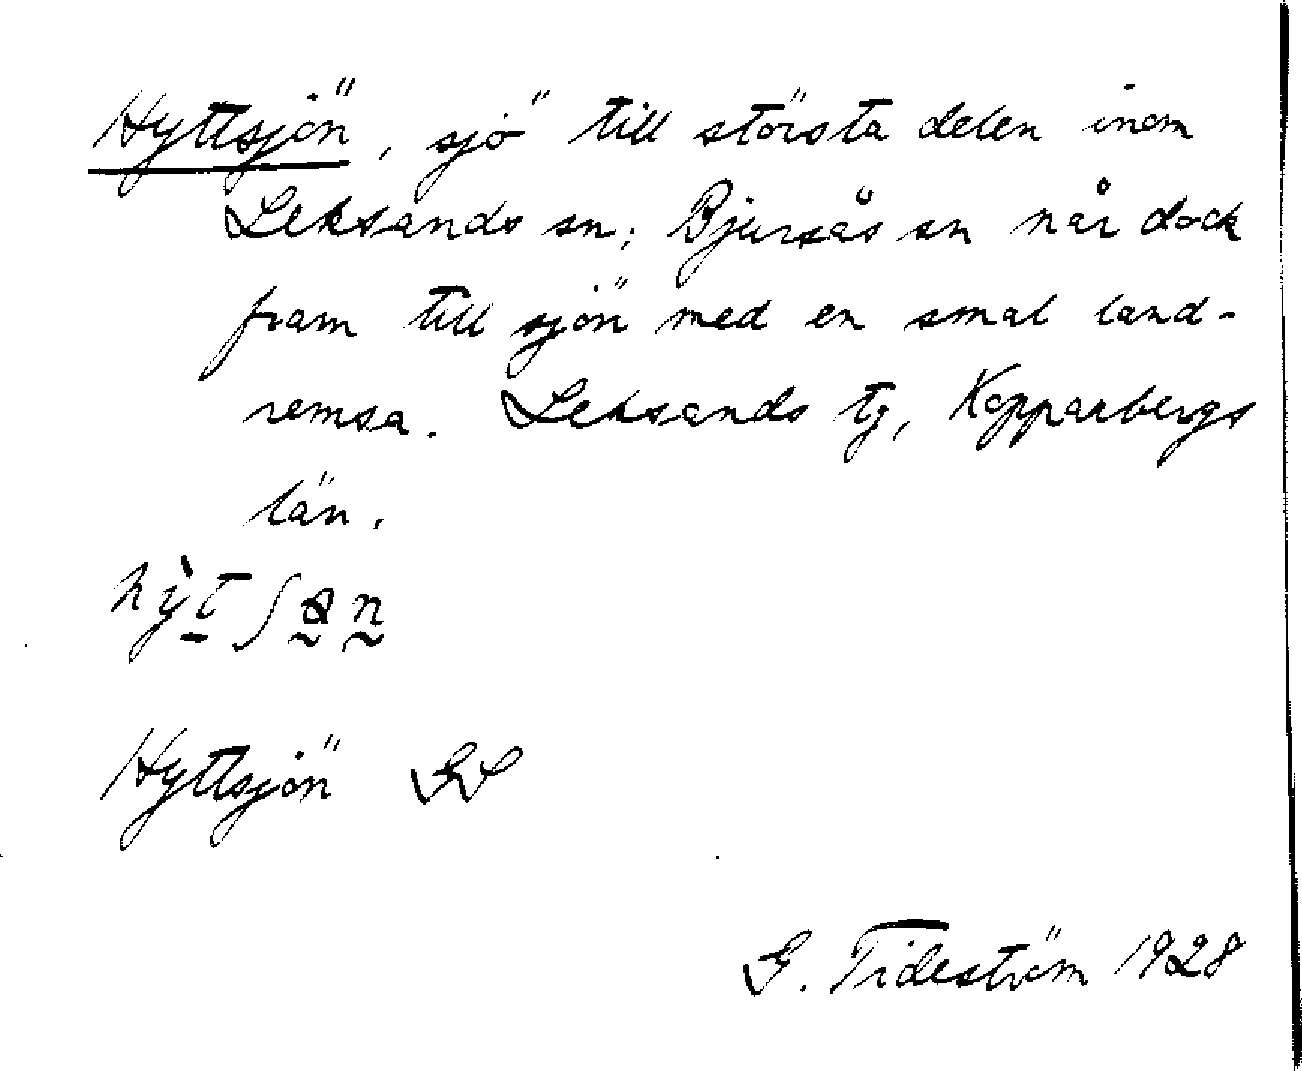 Hyttsjön, sjö till största delen inom
Leksands sn; Bjursås sn når dock
fram till sjön med en smal land-
remsa. Leksands tg, Kopparbergs
län.
Hyttsjön
G. Tideström 1928